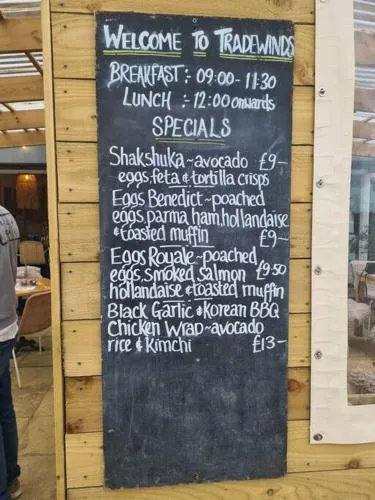 WELCOME TO TRADEWINDS
BREAKFAST :- 09:00 - 11:30
LUNCH :- 12:00 onwards
SPECIALS
Shakshuka ~ avocado £9-
eggs, feta & tortilla crisps
Eggs Benedict ~ poached
eggs, parma ham, hollandaise
& toasted muffin £9-
Eggs Royale ~ poached
eggs, smoked salmon £9.50
hollandaise & toasted muffin
Black Garlic & Korean BBQ
Chicken Wrap ~ avocado
rice & kimchi £13-